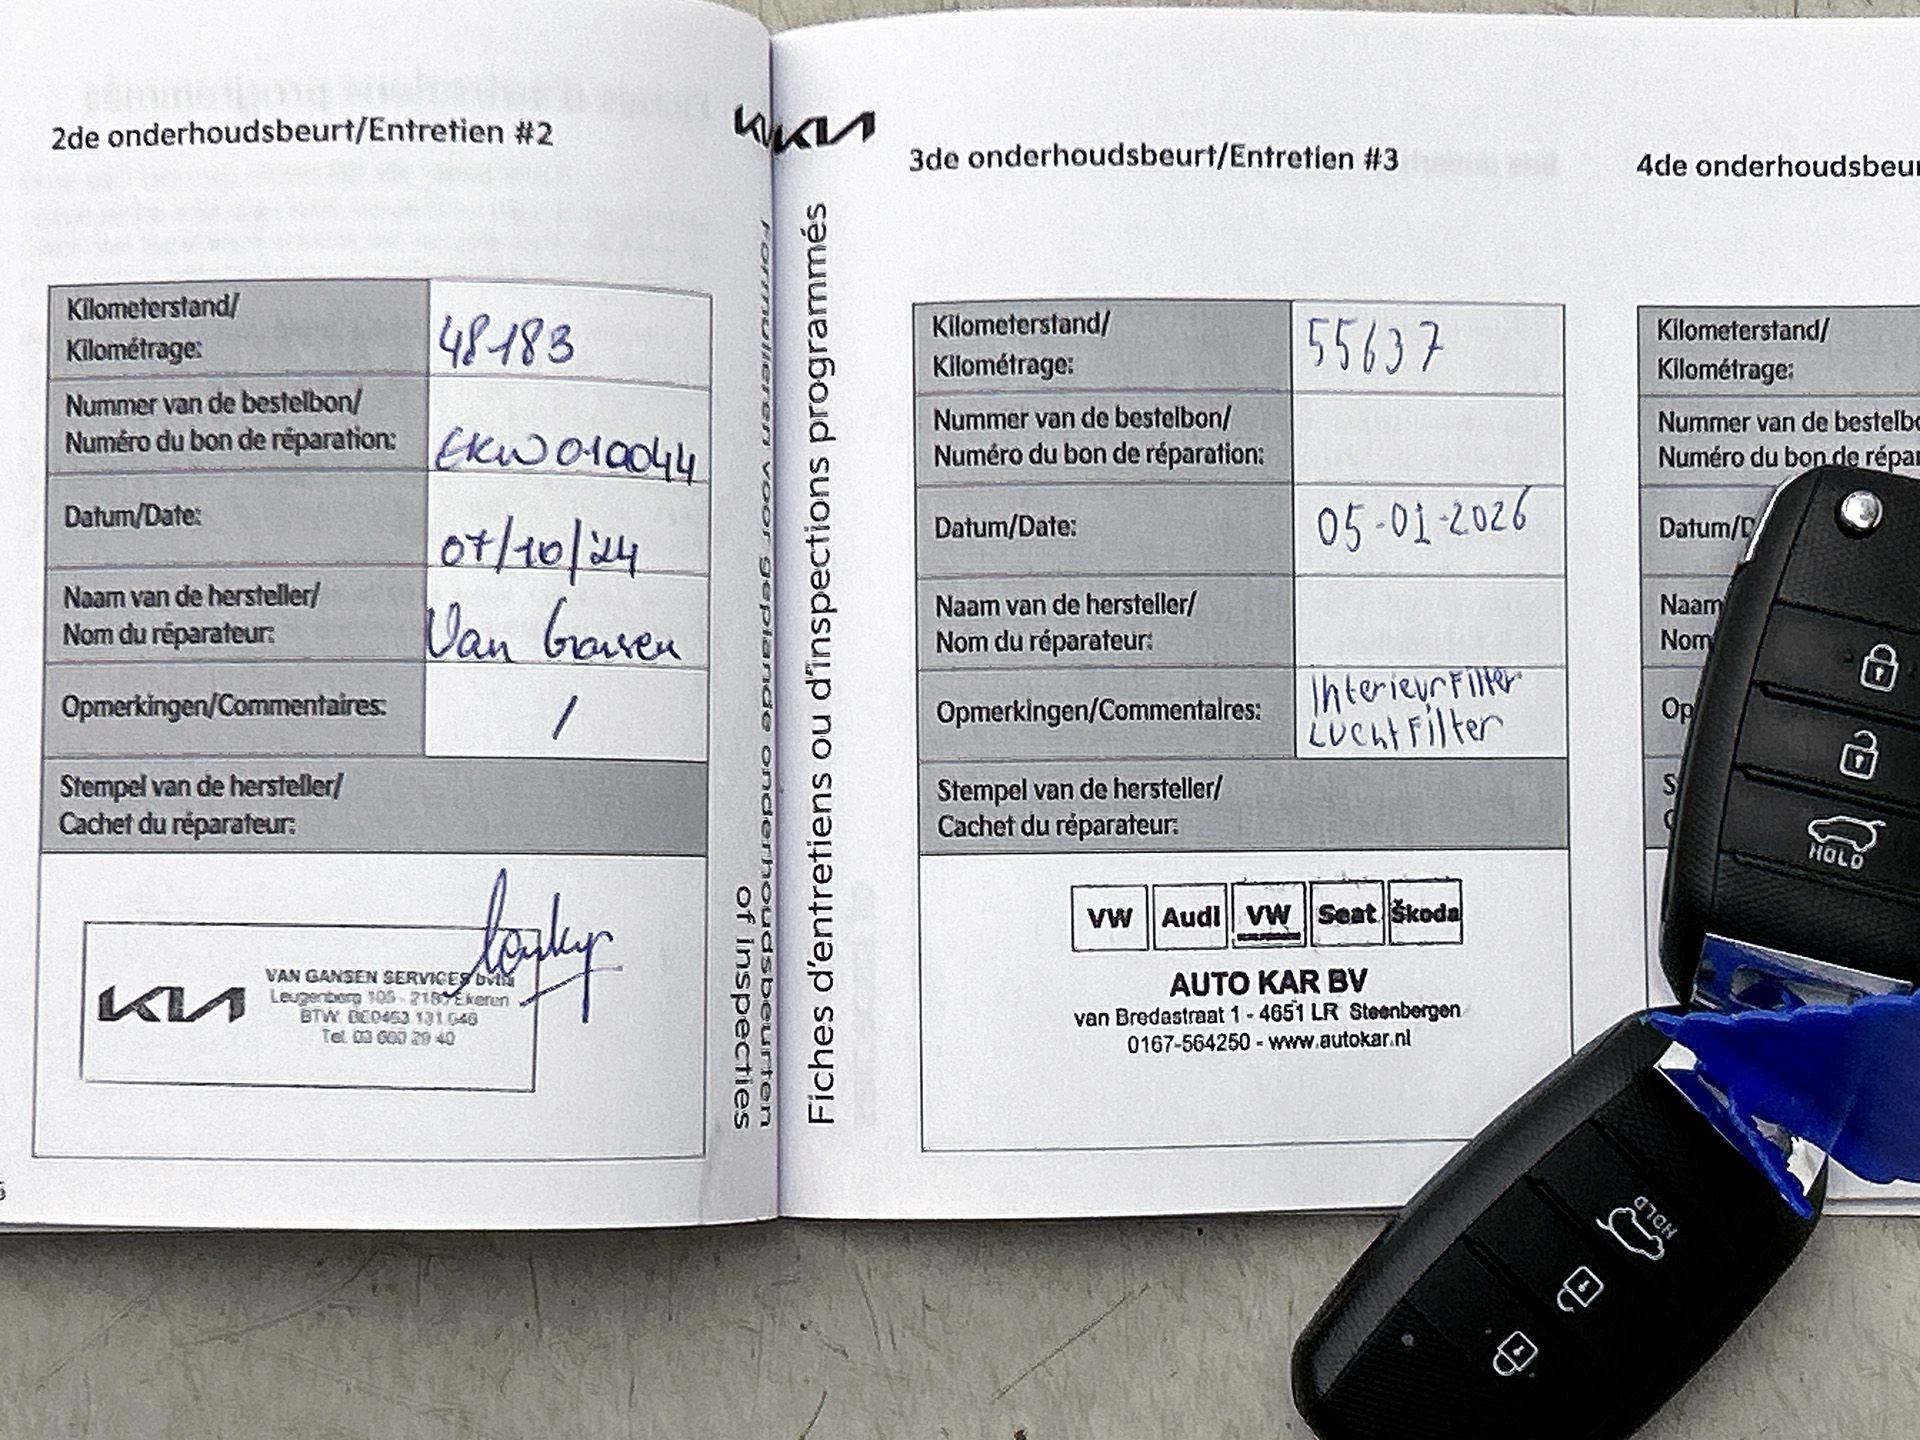 2de onderhoudsbeurt/Entretien #2
Kilometerstand/
Kilométrage:
48183
Nummer van de bestelbon/
Numéro du bon de réparation:
EKW010044
Datum/Date:
07/10/24
Naam van de hersteller/
Nom du réparateur:
Van Gansen
Opmerkingen/Commentaires:
/
Stempel van de hersteller/
Cachet du réparateur:
KIA
VAN GANSEN SERVICES bvba
Leugenberg 105 - 2180 Ekeren
BTW. BE0453 131 646
Tel. 03 660 29 40
Formulieren voor geplande onderhoudsbeurten
of inspecties
KIA
Fiches d'entretiens ou d'inspections programmés
3de onderhoudsbeurt/Entretien #3
Kilometerstand/
Kilométrage:
55637
Nummer van de bestelbon/
Numéro du bon de réparation:
Datum/Date:
05-01-2026
Naam van de hersteller/
Nom du réparateur:
Opmerkingen/Commentaires:
InterieurFilter
LuchtFilter
Stempel van de hersteller/
Cachet du réparateur:
VW Audi VW Seat Škoda
AUTO KAR BV
van Bredastraat 1 - 4651 LR Steenbergen
0167-564250 - www.autokar.nl
4de onderhoudsbeur
Kilometerstand/
Kilométrage:
Nummer van de bestelbo
Numéro du bon de répar
Datum/D
Naam
Nom
Op
HOLD
HOLD